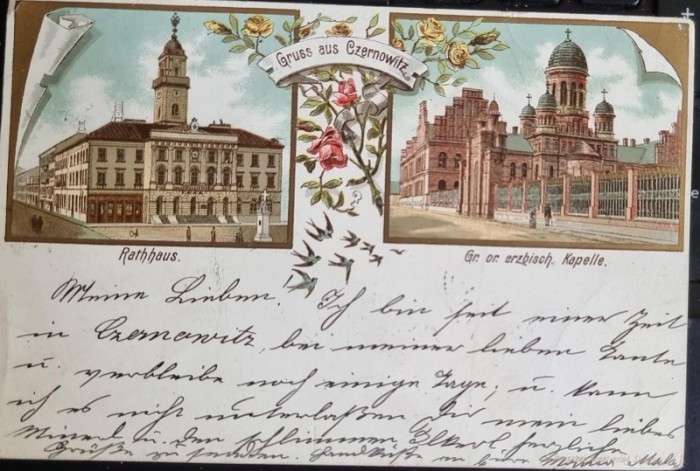 Gruss aus Czernowitz.
Rathhaus.
Gr. or. erzbisch. Kapelle.
Meine Lieben. Ich bin seit einer Zeit
in Czernowitz, bei meiner lieben Tante
u. verbleibe noch einige Tage; u. kann
ich es nicht unterlaßen Dir mein liebes
u. den schlimmen herzliche
Grüße zu senden.